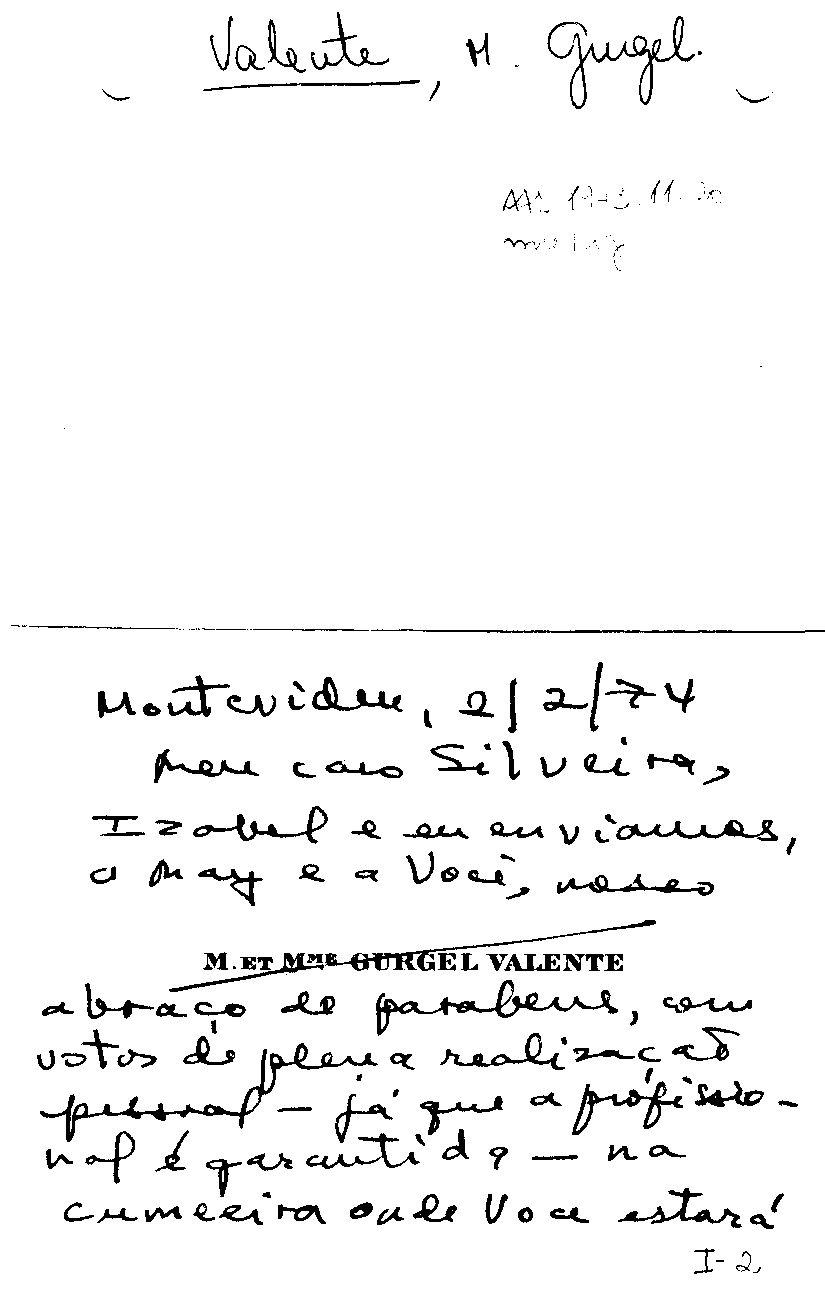 Valente, M. Gurgel.
Montevideu, 2/2/74
Meu caro Silveira,
Izabel e eu enviamos,
a May e a Você, nosso
M. ET MME GURGEL VALENTE
abraço de parabens, com
votos de plena realização
pessoal — já que a profissio-
nal é garantida — na
cumeeira onde Voce estará
I-2